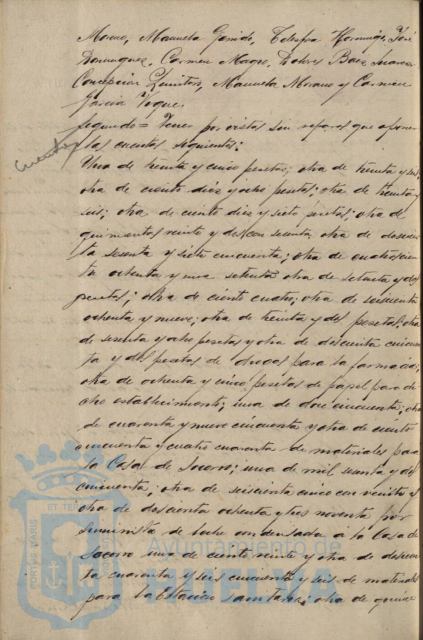 Moreno, Manuela Garrido, Telesfora Hormigo, José
Dominguez, Carmen Magro, Dolores Baez Suarez
Concepcion Quintero, Manuela Moreno y Carmen
Garcia Vazque.
Segundo = Tener por vistas sin reparos que oponer
Cuentas
las cuentas siguientes:
Una de treinta y cinco pesetas; otra de treinta y seis;
otra de ciento diez y ocho pesetas; otra de treinta y
seis; otra de ciento diez y siete pesetas; otra de
quinientas veinte y dos con sesenta; otra de doscien
ta sesenta y siete cincuenta; otra de cuatrocien
ta ochenta y una setenta; otra de setenta y dos
pesetas; otra de ciento cuatro; otra de seiscienta
ochenta y nueve; otra de treinta y dos pesetas; otra
de sesenta y ocho pesetas y otra de doscienta cincuen
ta y dos pesetas de drogas para la farmacia;
otra de ochenta y cinco pesetas de papel para di
cho establecimiento; una de doce cincuenta; otra
de cuarenta y nueve cincuenta y otra de ciento
cincuenta y cuatro cuarenta de materiales para
la Casa de Socorro; una de mil sesenta y dos
cincuenta; otra de seiscienta cinco con veinte y
otra de doscienta ochenta y tres noventa por
suministro de leche condensada a la Casa de
Socorro una de ciento veinte y otra de doscien
ta cuarenta y seis cincuenta y seis de materiales
para la Estacion sanitaria; otra de quince
PORTUS MARIS ET TERRÆ
Ayuntamiento de
HUELVA